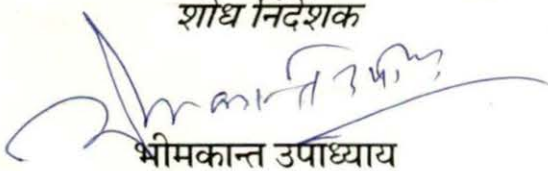 शोध निर्देशक
भीमकान्त उपाध्याय